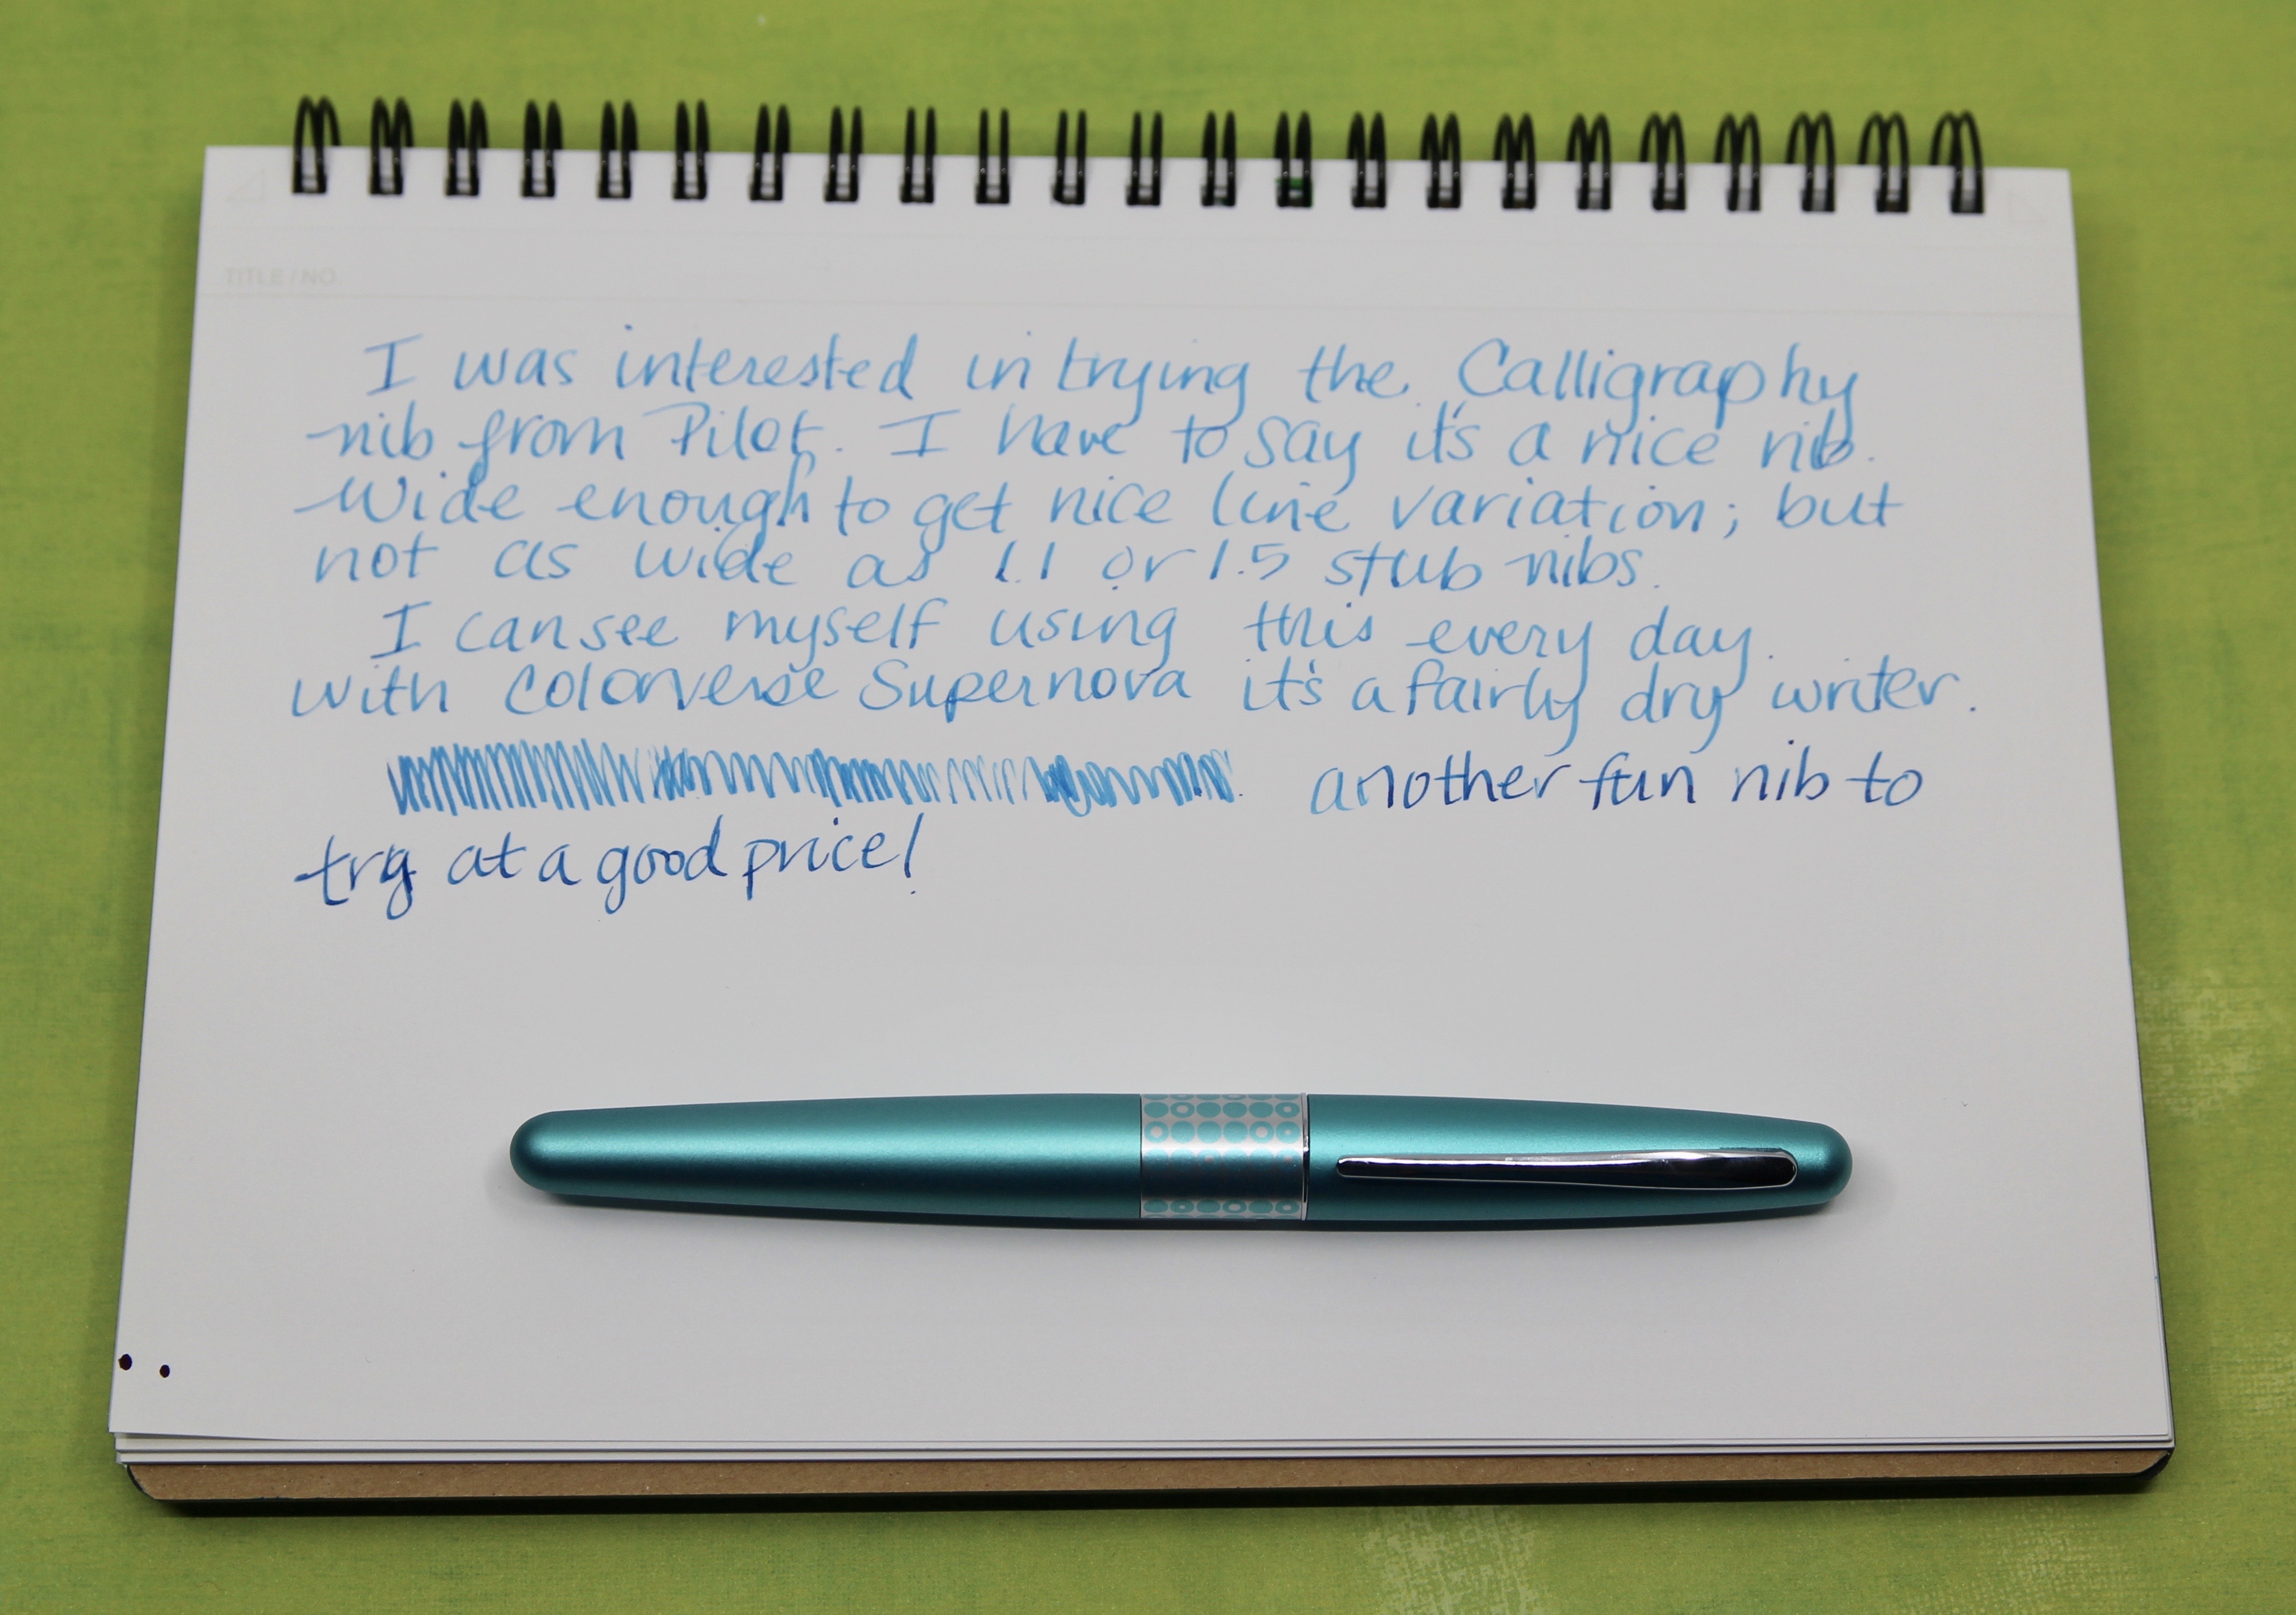 TITLE / NO.
I was interested in trying the Calligraphy
nib from Pilot. I have to say it's a nice nib.
Wide enough to get nice line variation; but
not as wide as 1.1 or 1.5 stub nibs.
I can see myself using this every day.
with Colorverse Supernova it's a fairly dry writer.
another fun nib to
try at a good price!